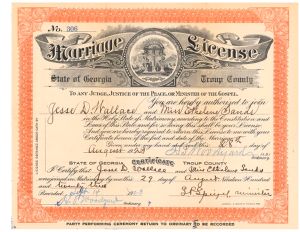 No. 306
Marriage License
State of Georgia Troup County
TO ANY JUDGE, JUSTICE OF THE PEACE, OR MINISTER OF THE GOSPEL.
You are hereby authorized to join
Jesse D. Wallace and Miss Ethelene Sands
in the Holy State of Matrimony, according to the Constitution and
Laws of this State, and for so doing this shall be your
And you are hereby required to return this License to me with your
Certificate hereon of the fact and date of the
Given under my hand and seal this 28th
August 1923
STATE OF GEORGIA Certificate TROUP COUNTY
I Certify that Jesse D. Wallace and Miss Ethelene Sands
were joined in Matrimony by me this 29 day of August Nineteen Hundred
and Twenty three
Recorded
PARTY PERFORMING CEREMONY RETURN TO ORDINARY TO BE RECORDED